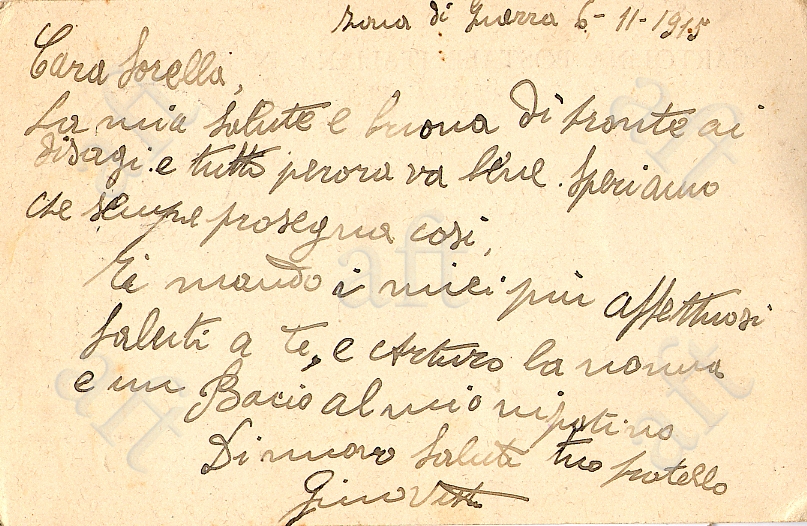 Zona di Guerra 6-11-1915
Cara Sorella,
La mia salute e buona di fronte ai
disagi. e tutto perora va bene. Speriamo
che sempre prosegua cosi,
Ti mando i miei più affettuosi
saluti a te, e Arturo la nonna
e un Bacio al mio nipotino
Di nuovo saluti tuo fratello
Gino